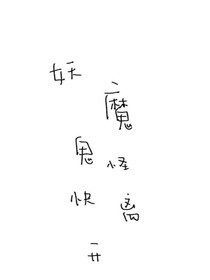 妖
魔
鬼 怪
快 离
开